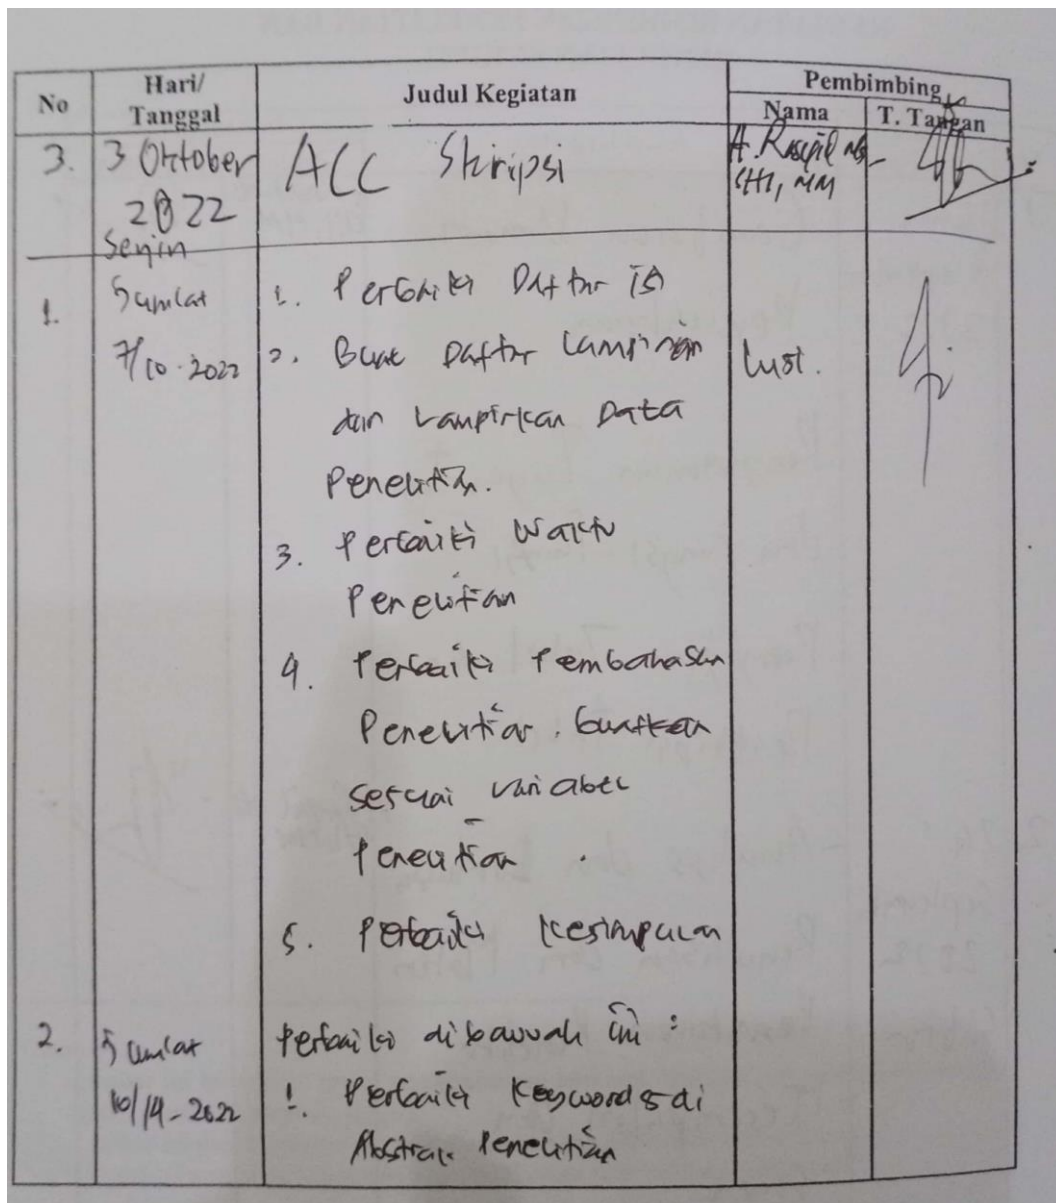 No Hari/ Tanggal Judul Kegiatan Pembimbing
Nama T. Tangan
3. 3 Oktober 2022 Senin ACC Skripsi A. SHI, MM
1. Jumlat 7/10-2022 1. Perbaiki Daftar isi
2. Buat Daftar Lampiran Lusi.
dan Lampirkan Data
Penelitian.
3. Perbaiki Waktu
Penelitian
4. Perbaiki Pembahasan
Penelitian. buatkan
sesuai variabel
Penelitian
5. Perbaiki Kesimpulan
2. Jumlat 10/14-2022 Perbaiki dibawah ini :
1. Perbaiki Keywords di
Abstrak Penelitian